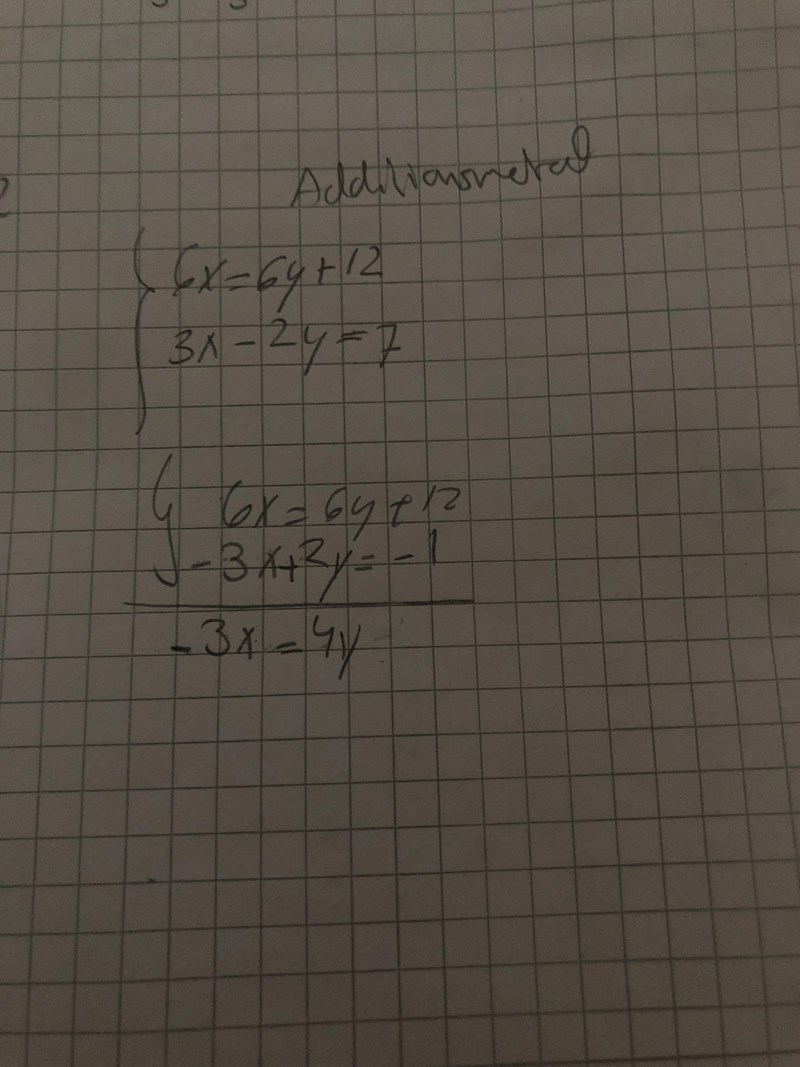 Additionsmetod
6x=6y+12
3x-2y=7
6x=6y+12
-3x+2y=-1
-3x=4y